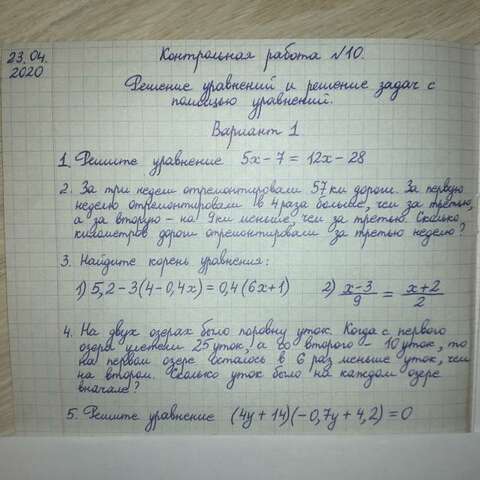 23.04.
2020
Контрольная работа №10.
Решение уравнений и решение задач с
помощью уравнений.
Вариант 1
1. Решите уравнение 5x - 7 = 12x - 28
2. За три недели отремонтировали 57 км дороги. За первую
неделю отремонтировали в 4 раза больше, чем за третью,
а за вторую - на 9 км меньше чем за третью. Сколько
километров дороги отремонтировали за третью неделю?
3. Найдите корень уравнения:
1) 5,2 - 3(4 - 0,4x) = 0,4(6x + 1) 2) (x-3)/9 = (x+2)/2
4. На двух озёрах было поровну уток. Когда с первого
озера улетели 25 уток, а со второго - 10 уток, то
на первом озере осталось в 6 раз меньше уток, чем
на втором. Сколько уток было на каждом озере
вначале?
5. Решите уравнение (4y + 14)(-0,7y + 4,2) = 0